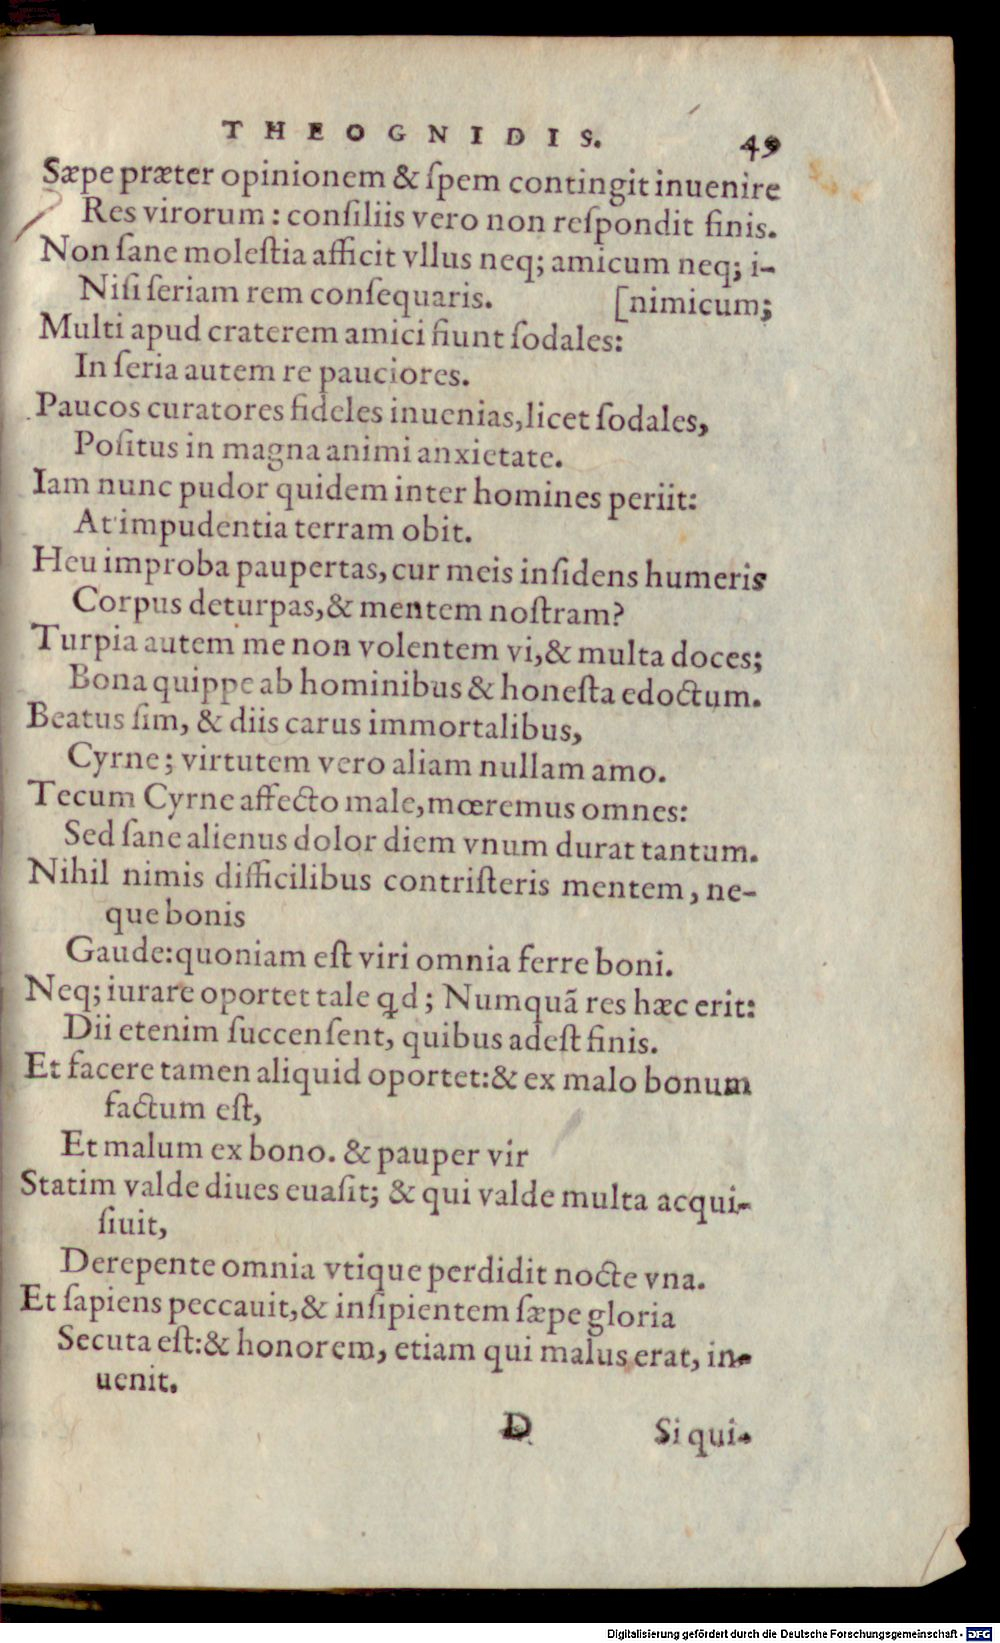 THEOGNIDIS. 49
Sæpe præter opinionem & ſpem contingit inuenire
Res virorum: conſiliis vero non reſpondit finis.
Non ſane moleſtia afficit vllus neq; amicum neq; i-
Niſi ſeriam rem conſequaris. [nimicum;
Multi apud craterem amici fiunt ſodales:
In ſeria autem re pauciores.
Paucos curatores fideles inuenias, licet ſodales,
Poſitus in magna animi anxietate.
Iam nunc pudor quidem inter homines periit:
At impudentia terram obit.
Heu improba paupertas, cur meis inſidens humeris
Corpus deturpas, & mentem noſtram?
Turpia autem me non volentem vi, & multa doces;
Bona quippe ab hominibus & honeſta edoctum.
Beatus ſim, & diis carus immortalibus,
Cyrne; virtutem vero aliam nullam amo.
Tecum Cyrne affecto male, mœremus omnes:
Sed ſane alienus dolor diem vnum durat tantum.
Nihil nimis difficilibus contriſteris mentem, ne-
que bonis
Gaude: quoniam eſt viri omnia ferre boni.
Neq; iurare oportet tale qd; Numquã res hæc erit:
Dii etenim ſuccenſent, quibus adeſt finis.
Et facere tamen aliquid oportet: & ex malo bonum
factum eſt,
Et malum ex bono. & pauper vir
Statim valde diues euaſit; & qui valde multa acqui-
ſiuit,
Derepente omnia vtique perdidit nocte vna.
Et ſapiens peccauit, & inſipientem ſæpe gloria
Secuta eſt: & honorem, etiam qui malus erat, in-
uenit.
D Si qui-
Digitalisierung gefördert durch die Deutsche Forschungsgemeinschaft - DFG